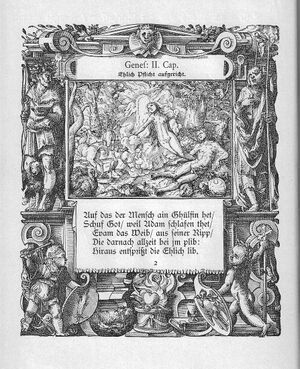 Genes: II. Cap.
Ehlich Pflicht aufgericht.
Auf das der Mensch ain Ghülfin het/
Schuf Got/ weil Adam schlafen thet/
Evam das Weib/ aus seiner Ripp/
Die darnach allzeit bei jm plib:
Hiraus entsprißt die Ehlich lib.
2